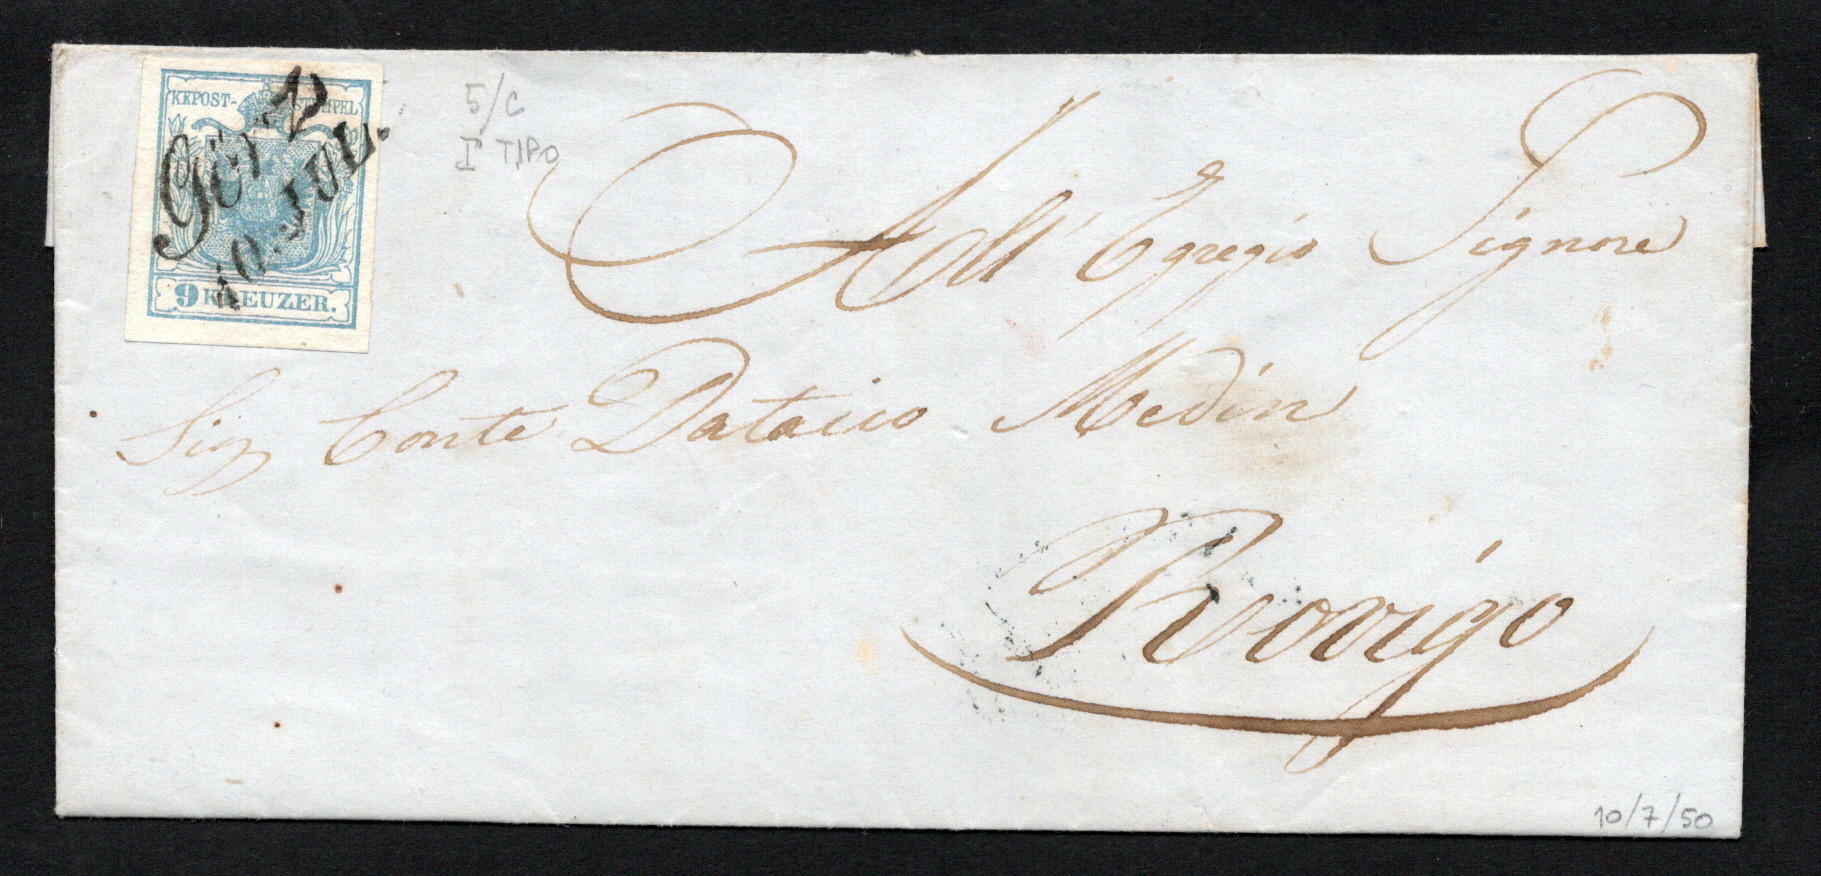 KKPOST-STEMPEL
Görz
10. JUL.
9 KREUZER.
5/C
I° TIPO
All' Egregio Signore
Sig Conte Dataico Medin
Rovigo
10/7/50